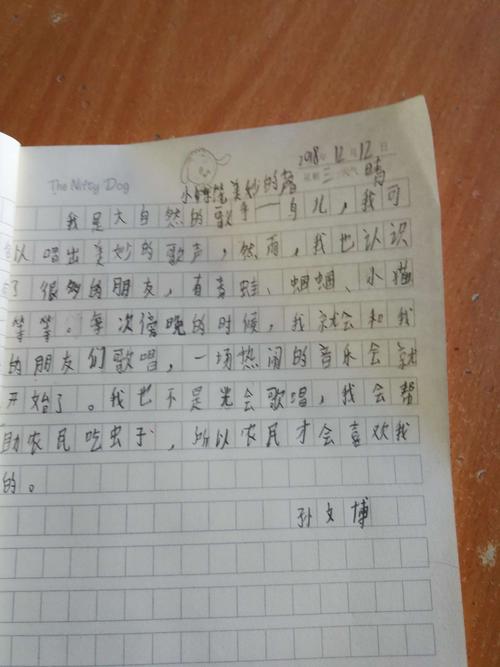 2018年 12月12日
The Nifty Dog 星期三 天气 晴
小练笔 美妙的声
我是大自然的歌手——鸟儿，我可
以唱出美妙的歌声，然而，我也认识
了很多的朋友，有青蛙、蝈蝈、小猫
等等。每次傍晚的时候，我就会和我
的朋友们歌唱，一场热闹的音乐会就
开始了。我也不是光会歌唱，我会帮
助农民吃虫子，所以农民才会喜欢我
的。
孙文博